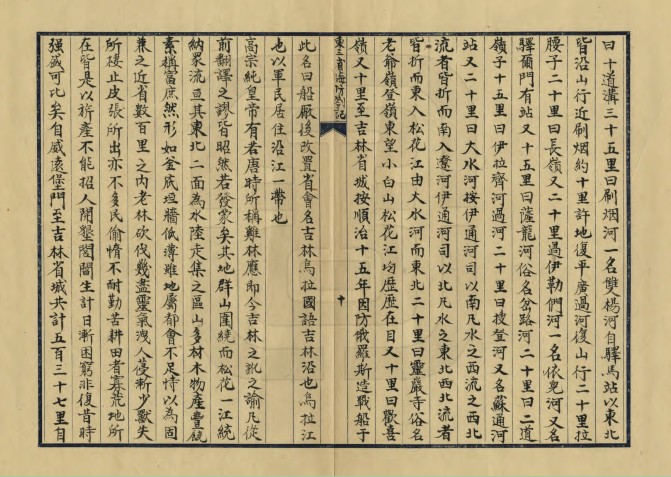 曰十道溝三十五里曰刷烟河一名雙楊河自驛馬站以東北
皆沿山行近刷烟約十里許地復平廣過河復山行二十里拉
腰子二十里曰長嶺又二十里過伊勒們河一名依兒河又名
驛爾門有站又十五里曰薩龍河俗名岔路河二十里曰二道
嶺子十五里曰伊拉齊河過河二十里曰搜登河又名蘇通河
站又二十里曰大水河按伊通河司以南凡水之西流之西北
流者皆折而南入遼河伊通河司以北凡水之東北西北流者
皆折而東入松花江由大水河而東北二十里曰靈巖寺俗名
老爺嶺登嶺東望小白山松花江均歷歷在目又十里曰歡喜
嶺又十里至吉林省城按順治十五年因防俄羅斯造戰船于
東三省海防劄記
十
此名曰船廠後改置省會名吉林烏拉國語吉林沿也烏拉江
也以軍民居住沿江一帶也
高宗純皇帝有若唐時所稱雞林應即今吉林之訛之諭凡從
前翻譯之謬皆昭然若發蒙矣其地群山圍繞而松花一江統
納眾流亘其東北二面為水陸走集之區山多材木物產豐饒
素稱富庶然形如釜底垣牆低薄雖地屬都會不足恃以為固
兼之近省數百里之內老林砍伐幾盡靈氣洩人侵漸少獸失
所棲止皮張所出亦不多民偷惰不耐勤苦耕田者寡荒地所
在皆是以旂產不能招人開墾閭閻生計日漸困窮非復昔時
强盛可比矣自威遠堡門至吉林省城共計五百三十七里自